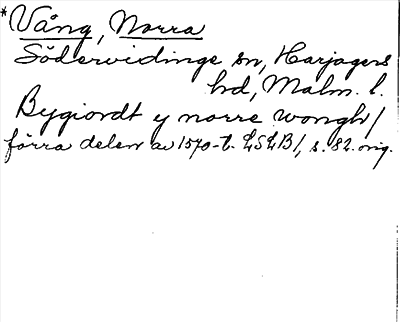 *Vång, Norra
Södervidinge sn, Harjagers
hd, Malm. l.
Bygiordt y norre wongh/
förra delen av 1570-t. LSLB/, s. 82. orig.